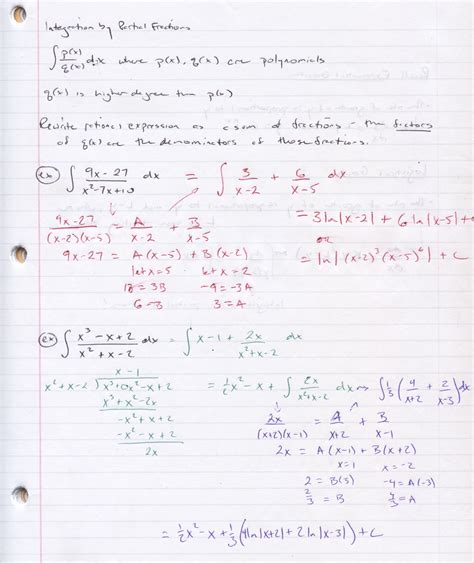 Integration by Partial Fractions
∫ p(x)/q(x) dx where p(x), q(x) are polynomials
q(x) is higher degree than p(x)
Rewrite rational expression as a sum of fractions - the factors
of q(x) are the denominators of those fractions.
ex) ∫ (9x-27)/(x²-7x+10) dx = ∫ 3/(x-2) + 6/(x-5) dx
(9x-27)/((x-2)(x-5)) = A/(x-2) + B/(x-5)
= 3 ln|x-2| + 6 ln|x-5| + C
9x-27 = A(x-5) + B(x-2)
or
let x=5 let x=2
= ln|(x-2)³(x-5)⁶| + C
18=3B -9=-3A
6=B 3=A
ex) ∫ (x³-x+2)/(x²+x-2) dx = ∫ x-1 + 2x/(x²+x-2) dx
x-1
x²+x-2 ) x³+0x²-x+2
= ½x² - x + ∫ 2x/(x²+x-2) dx ⇒ ∫ ⅓(4/(x+2) + 2/(x-3)) dx
x³+x²-2x
-x²+x+2
-x²-x+2
2x
2x/((x+2)(x-1)) = A/(x+2) + B/(x-1)
2x = A(x-1) + B(x+2)
x=1 x=-2
2=B(3) -4=A(-3)
⅔=B 4/3=A
= ½x² - x + ⅓(4 ln|x+2| + 2 ln|x-3|) + C